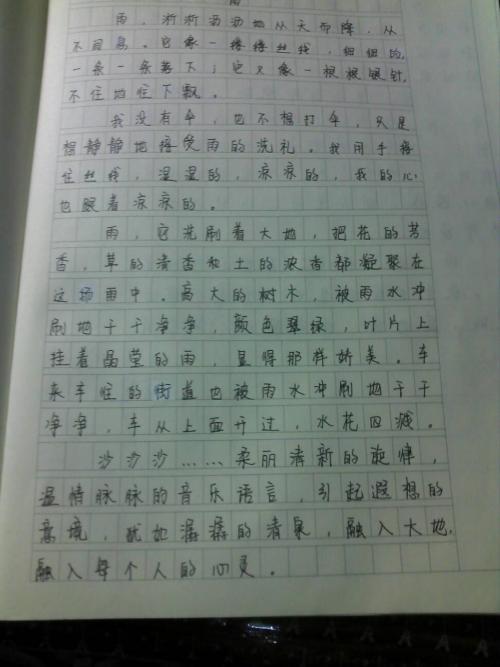 雨
雨,淅淅沥沥地从天而降,从
不同息。它像一缕缕丝线,细细的,
一条一条落下;它又像一根根银针,
不住地往下飘。
我没有伞,也不想打伞,只是
想静静地接受雨的洗礼。我用手接
住丝线,湿湿的,凉凉的,我的心
也跟着凉凉的。
雨,它洗刷着大地,把花的芳
香,草的清香和土的浓香都凝聚在
这场雨中。高大的树木,被雨水冲
刷地干干净净,颜色翠绿,叶片上
挂着晶莹的雨,显得那样娇美。车
来车往的街道也被雨水冲刷地干干
净净,车从上面开过,水花四溅。
沙沙沙……柔丽清新的旋律,
温情脉脉的音乐语言,引起遐想的
意境,犹如潺潺的清泉,融入大地,
融入每个人的心灵。